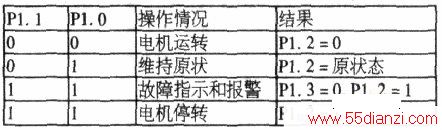 P1.1 P1.0 操作情况 结果
0 0 电机运转 P1.2=0
0 1 维持原状 P1.2=原状态
1 1 故障指示和报警 P1.3=0 P1.2=1
1 1 电机停转
www.55dianzi.com